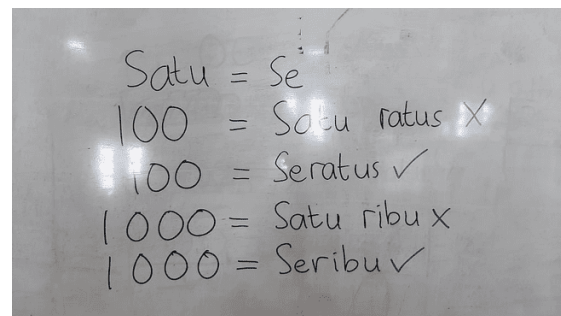 Satu = Se
100 = Satu ratus X
100 = Seratus ✓
1000 = Satu ribu X
1000 = Seribu ✓